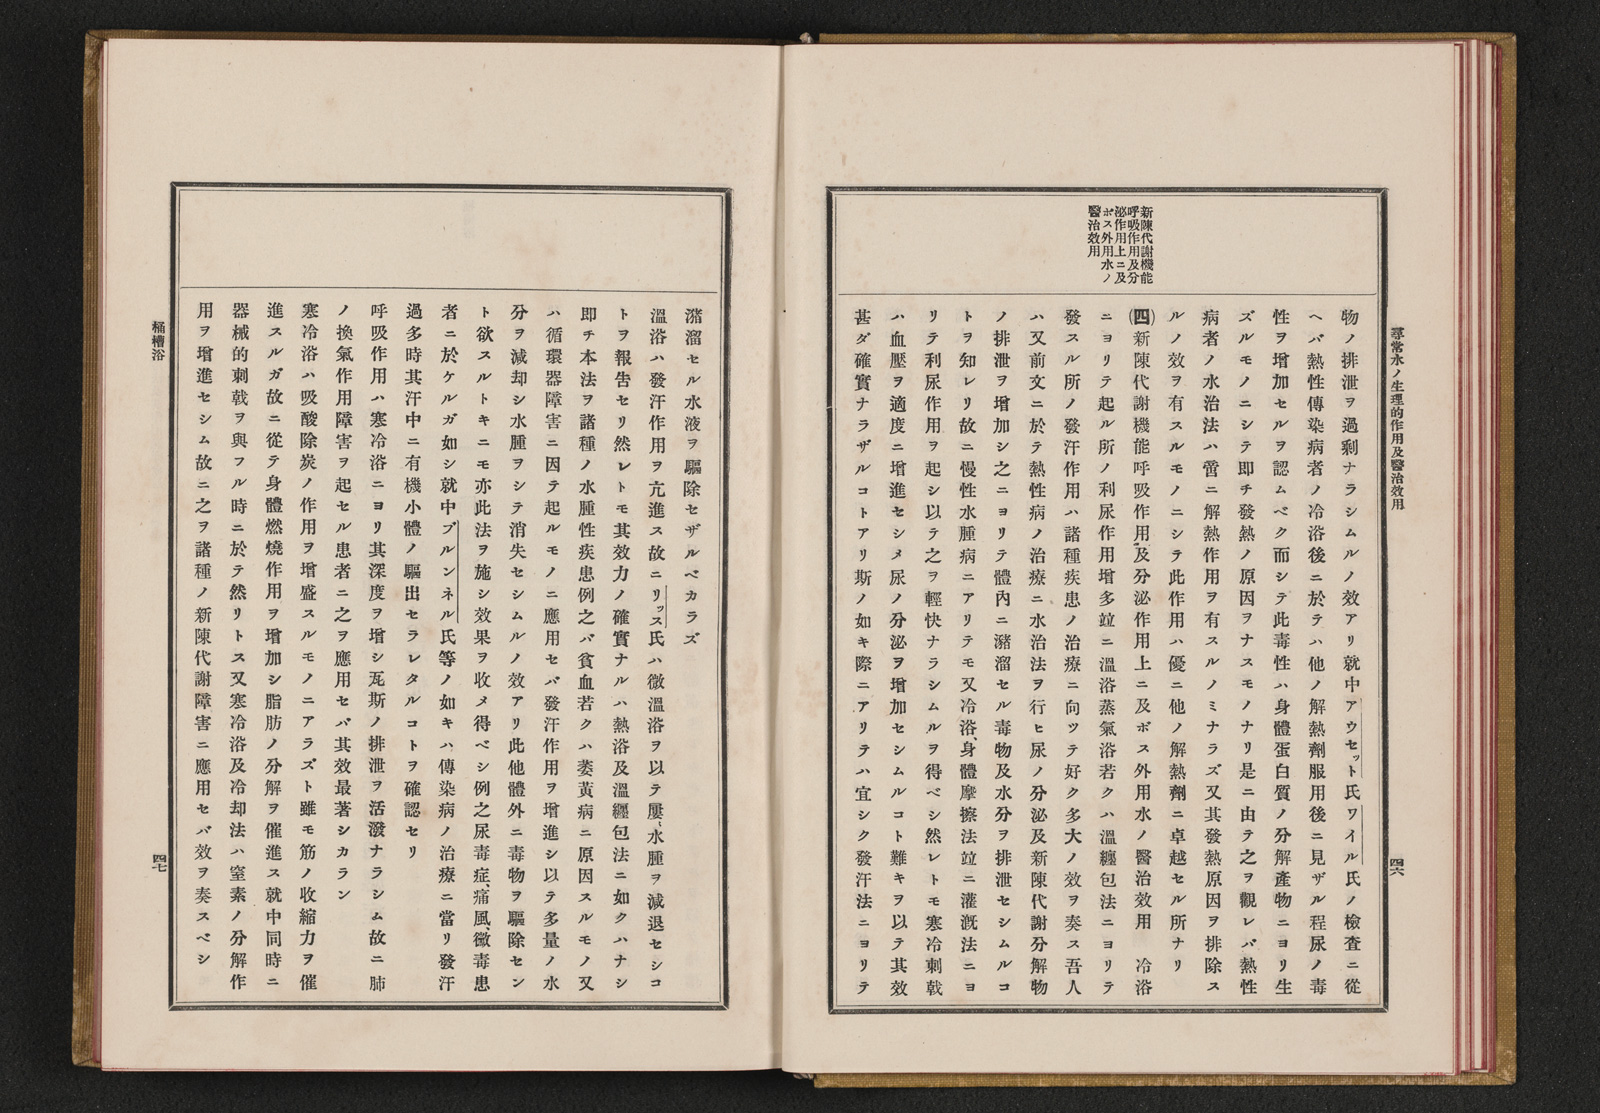 尋常水ノ生理的作用及醫治效用
四六
新陳代謝機能
呼吸作用及分
泌作用上ニ及
ボス外用水ノ
醫治效用
物ノ排泄ヲ過剩ナラシムルノ效アリ就中アウセット氏ワイル氏ノ檢査ニ從
ヘバ熱性傳染病者ノ冷浴後ニ於テハ他ノ解熱劑服用後ニ見ザル程尿ノ毒
性ヲ增加セルヲ認ムベク而シテ此毒性ハ身體蛋白質ノ分解產物ニヨリ生
ズルモノニシテ即チ發熱ノ原因ヲナスモノナリ是ニ由テ之ヲ觀レバ熱性
病者ノ水治法ハ啻ニ解熱作用ヲ有スルノミナラズ又其發熱原因ヲ排除ス
ルノ效ヲ有スルモノニシテ此作用ハ優ニ他ノ解熱劑ニ卓越セル所ナリ
(四)新陳代謝機能呼吸作用及分泌作用上ニ及ボス外用水ノ醫治效用　冷浴
ニヨリテ起ル所ノ利尿作用增多竝ニ溫浴蒸氣浴若クハ溫纏包法ニヨリテ
發スル所ノ發汗作用ハ諸種疾患ノ治療ニ向ツテ好ク多大ノ效ヲ奏ス吾人
ハ又前文ニ於テ熱性病ノ治療ニ水治法ヲ行ヒ尿ノ分泌及新陳代謝分解物
ノ排泄ヲ增加シ之ニヨリテ體內ニ瀦溜セル毒物及水分ヲ排泄セシムルコ
トヲ知レリ故ニ慢性水腫病ニアリテモ又冷浴、身體摩擦法竝ニ灌漑法ニヨ
リテ利尿作用ヲ起シ以テ之ヲ輕快ナラシムルヲ得ベシ然レトモ寒冷刺戟
ハ血壓ヲ適度ニ增進セシメ尿ノ分泌ヲ增加セシムルコト難キヲ以テ其效
甚ダ確實ナラザルコトアリ斯ノ如キ際ニアリテハ宜シク發汗法ニヨリテ
瀦溜セル水液ヲ驅除セザルベカラズ
溫浴ハ發汗作用ヲ亢進ス故ニリッス氏ハ微溫浴ヲ以テ屢〻水腫ヲ減退セシコ
トヲ報告セリ然レトモ其效力ノ確實ナルハ熱浴及溫纏包法ニ如クハナシ
即チ本法ヲ諸種ノ水腫性疾患例之バ貧血若クハ萎黃病ニ原因スルモノ又
ハ循環器障害ニ因テ起ルモノニ應用セバ發汗作用ヲ增進シ以テ多量ノ水
分ヲ減却シ水腫ヲシテ消失セシムルノ效アリ此他體外ニ毒物ヲ驅除セン
ト欲スルトキニモ亦此法ヲ施シ效果ヲ收メ得ベシ例之尿毒症、痛風、黴毒患
者ニ於ケルガ如シ就中ブルンネル氏等ノ如キハ傳染病ノ治療ニ當リ發汗
過多時其汗中ニ有機小體ノ驅出セラレタルコトヲ確認セリ
呼吸作用ハ寒冷浴ニヨリ其深度ヲ增シ瓦斯ノ排泄ヲ活潑ナラシム故ニ肺
ノ換氣作用障害ヲ起セル患者ニ之ヲ應用セバ其效最著シカラン
寒冷浴ハ吸酸除炭ノ作用ヲ增盛スルモノニアラズト雖モ筋ノ收縮力ヲ催
進スルガ故ニ從テ身體燃燒作用ヲ增加シ脂肪ノ分解ヲ催進ス就中同時ニ
器械的刺戟ヲ與フル時ニ於テ然リトス又寒冷浴及冷却法ハ窒素ノ分解作
用ヲ增進セシム故ニ之ヲ諸種ノ新陳代謝障害ニ應用セバ效ヲ奏スベシ
桶槽浴
四七